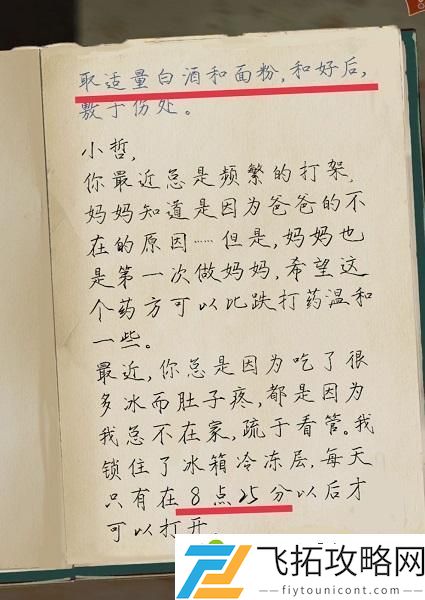 取适量白酒和面粉，和好后，
敷于伤处。
小哲，
你最近总是频繁的打架，
妈妈知道是因为爸爸的不
在的原因……但是，妈妈也
是第一次做妈妈，希望这
个药方可以比跌打药温和
一些。
最近，你总是因为吃了很
多冰而肚子疼，都是因为
我总不在家，疏于看管。我
锁住了冰箱冷冻层，每天
只有在8点25分以后才
可以打开。
飞拓攻略网
fiytounicont.com